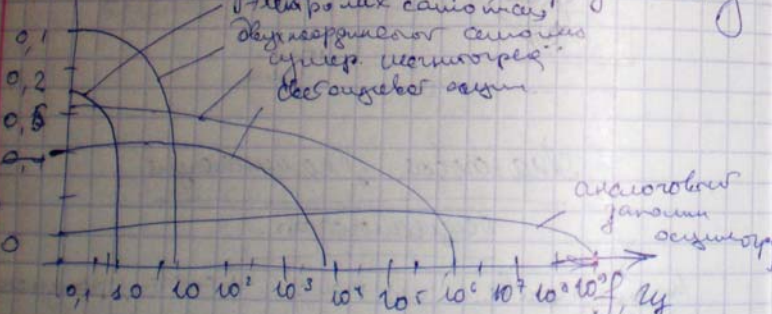 двухкоординатный самопис
супер. магнитограф
светолучевой осцил.
0,1
0,2
0,5
аналоговый
запомин
осциллогр
0
0,1 10 10 10² 10³ 10⁴ 10⁵ 10⁶ 10⁷ 10⁸ 10⁹ f, Гц